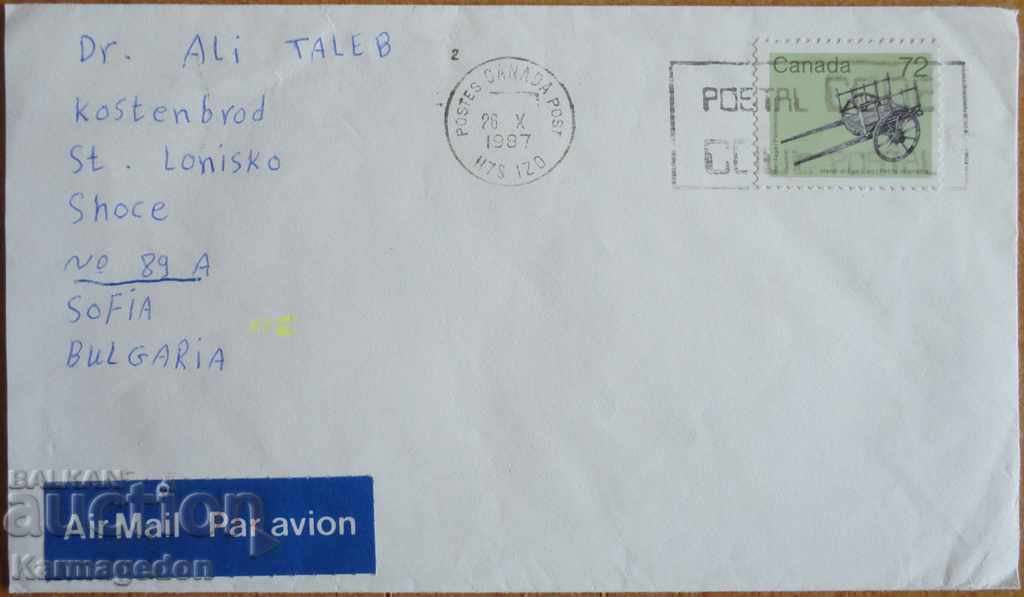 Dr. Ali TALEB
Kostenbrod
St. Lonisko
Shoce
No 89 A
SOFIA
BULGARIA
2
POSTES CANADA POST
26 X
1987
H7S 1Z0
POSTAL CODE
CODE POSTAL
Canada 72
Air Mail Par avion
BALKAN
auction
Karmagedon